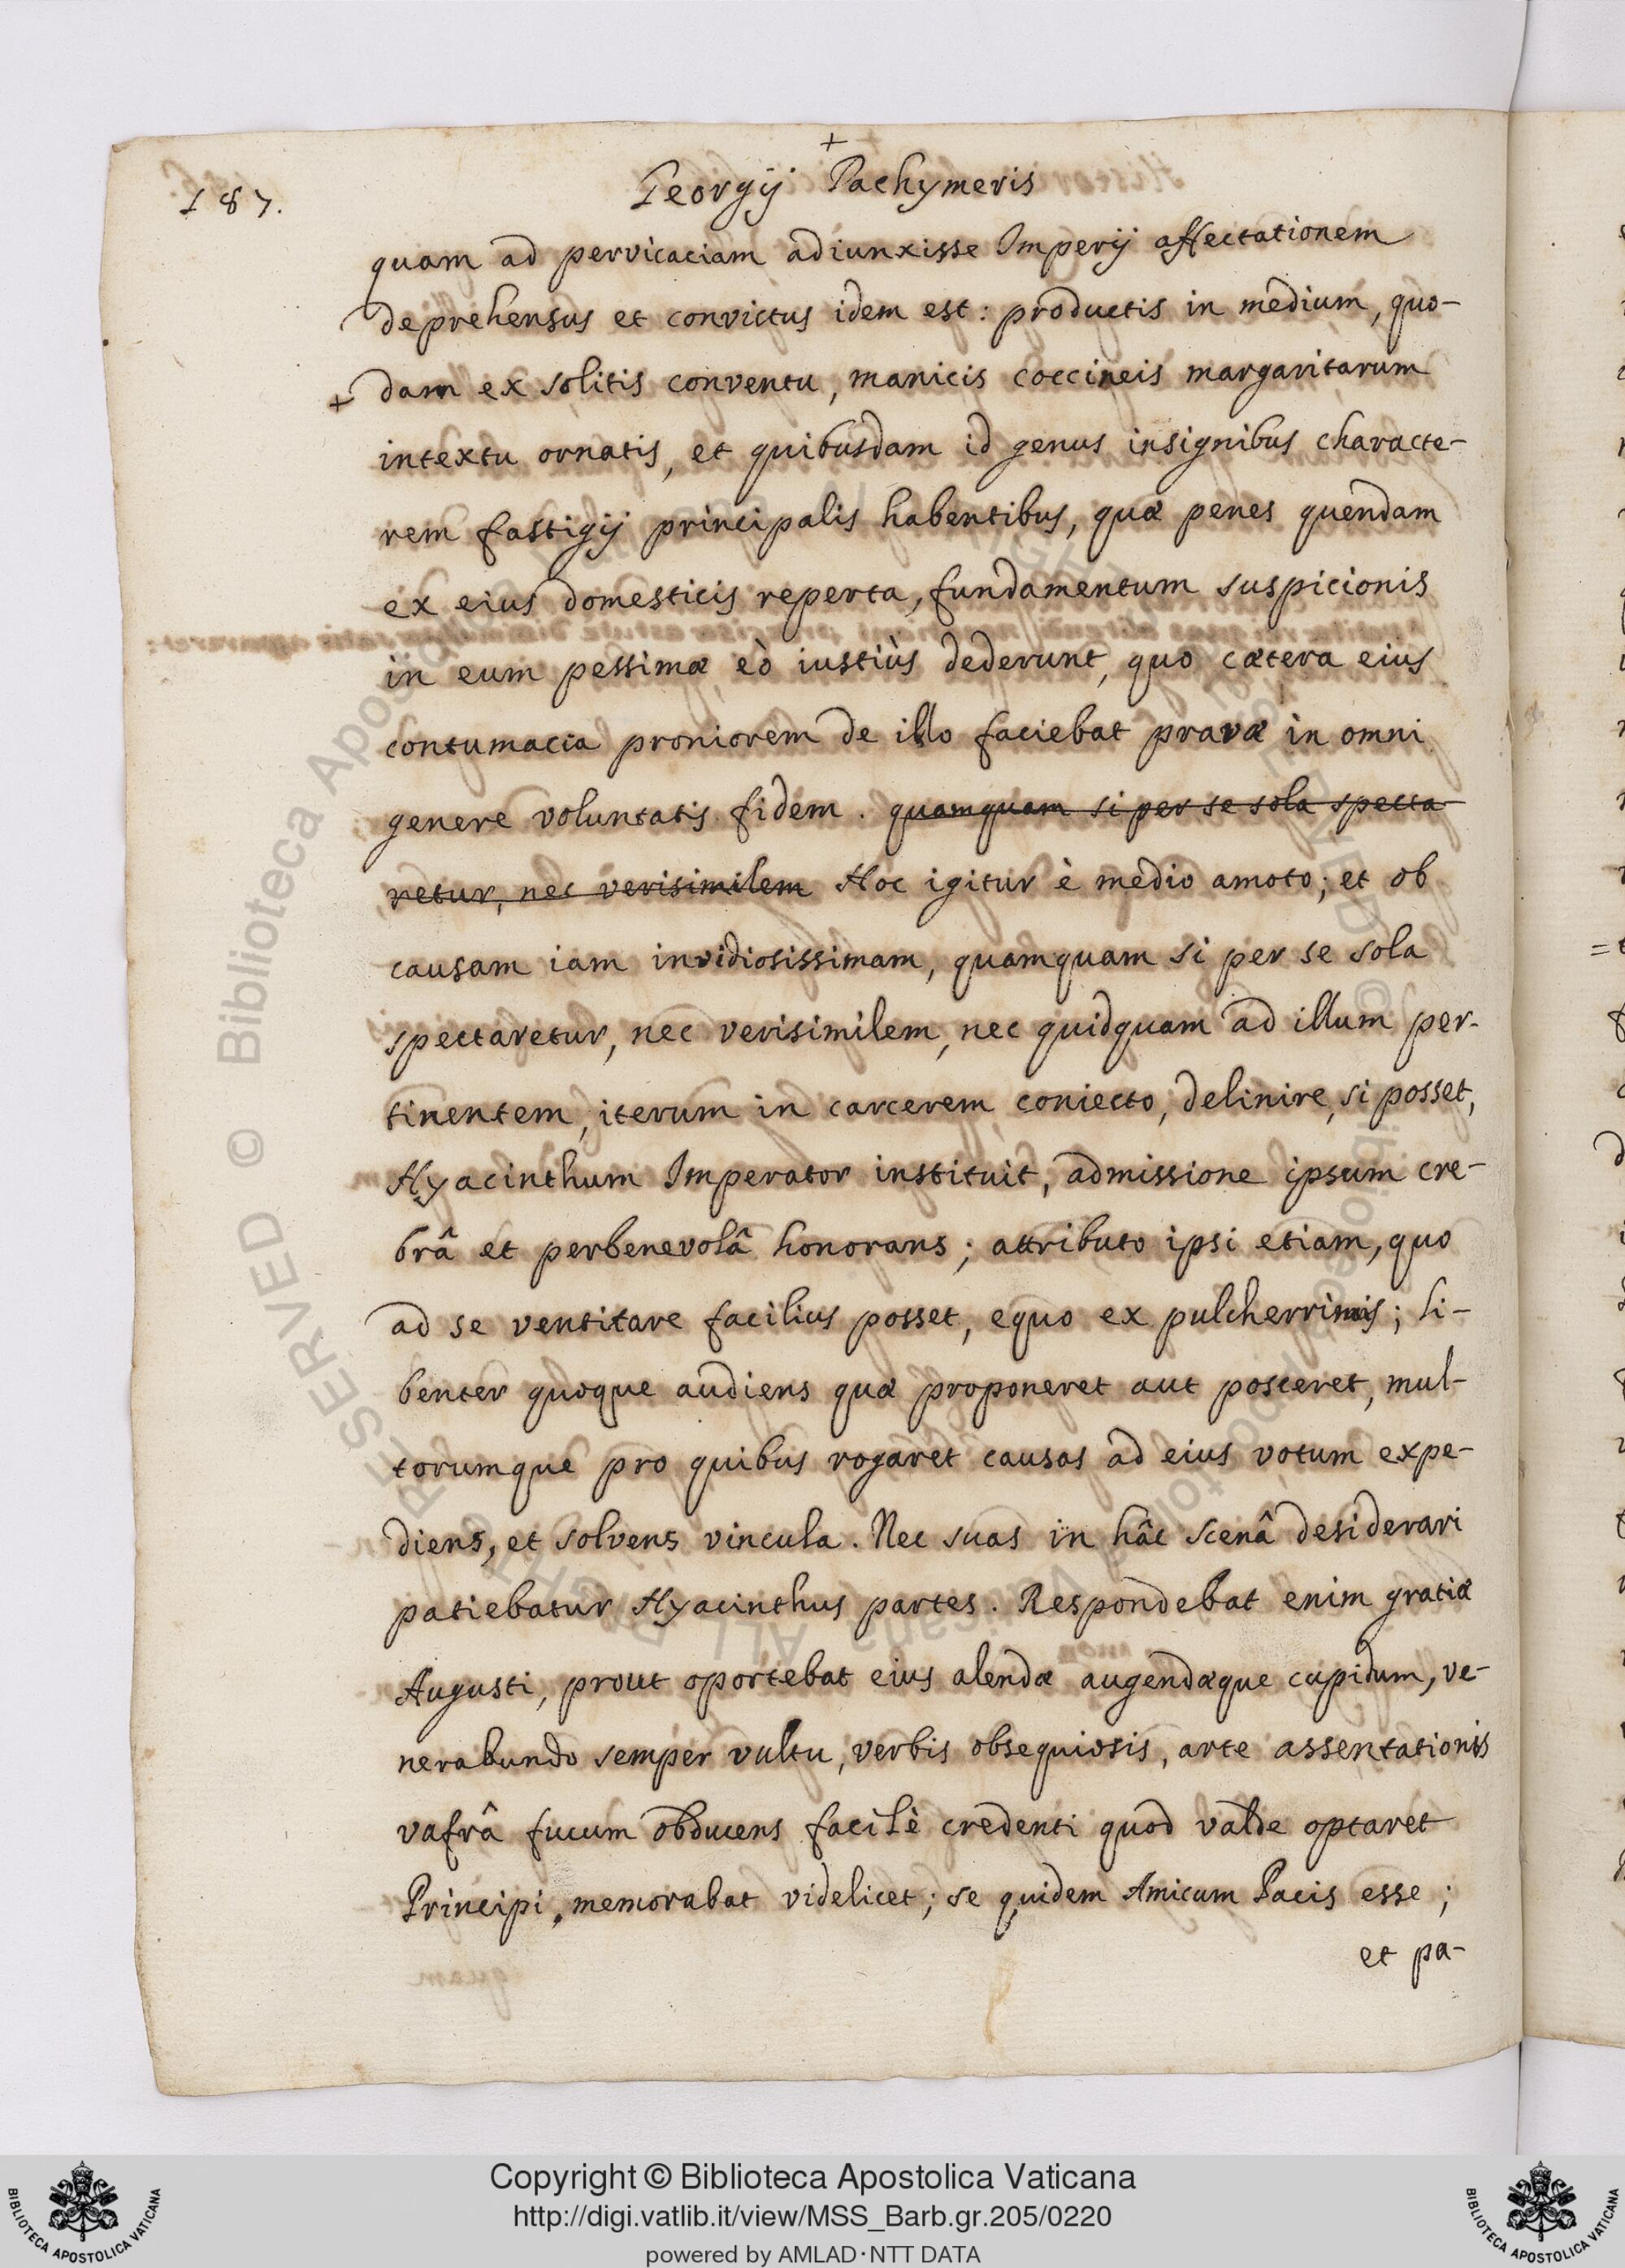 +
187.
Georgij Pachymeris
quam ad pervicaciam adiunxisse Imperij affectationem
deprehensus et convictus idem est: productis in medium, quo-
+ dam ex solitis conventu, manicis coccineis margaritarum
intextu ornatis, et quibusdam id genus insignibus characte-
rem fastigij principalis habentibus, quæ penes quendam
ex eius domesticis reperta, fundamentum suspicionis
in eum pessimæ eò iustiùs dederunt, quo cætera eius
contumacia proniorem de illo faciebat pravæ in omni
genere voluntatis fidem. quamquam si per se sola specta
retur, nec verisimilem Hoc igitur è medio amoto; et ob
causam iam invidiosissimam, quamquam si per se sola
spectaretur, nec verisimilem, nec quidquam ad illum per-
tinentem, iterum in carcerem coniecto, delinire, si posset,
Hyacinthum Imperator instituit, admissione ipsum cre-
brâ et perbenevolâ honorans; attributo ipsi etiam, quo
ad se ventitare facilius posset, equo ex pulcherrimis; li-
benter quoque audiens quæ proponeret aut posceret, mul-
torumque pro quibus rogaret causas ad eius votum expe-
diens, et solvens vincula. Nec suas in hâc scenâ desiderari
patiebatur Hyacinthus partes. Respondebat enim gratiæ
Augusti, prout oportebat eius alendæ augendæque cupidum, ve-
nerabundo semper vultu, verbis obsequiosis, arte assentationis
vafrâ fucum obducens facilè credenti quod valde optaret
Principi, memorabat videlicet; se quidem Amicum Pacis esse;
et pa-
Copyright © Biblioteca Apostolica Vaticana
http://digi.vatlib.it/view/MSS_Barb.gr.205/0220
powered by AMLAD·NTT DATA
BIBLIOTECA APOSTOLICA VATICANA
BIBLIOTECA APOSTOLICA VATICANA